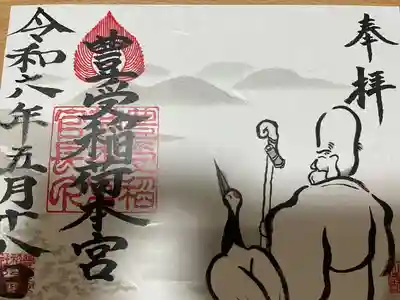 奉拝
豊受稲荷本宮
令和六年五月十八